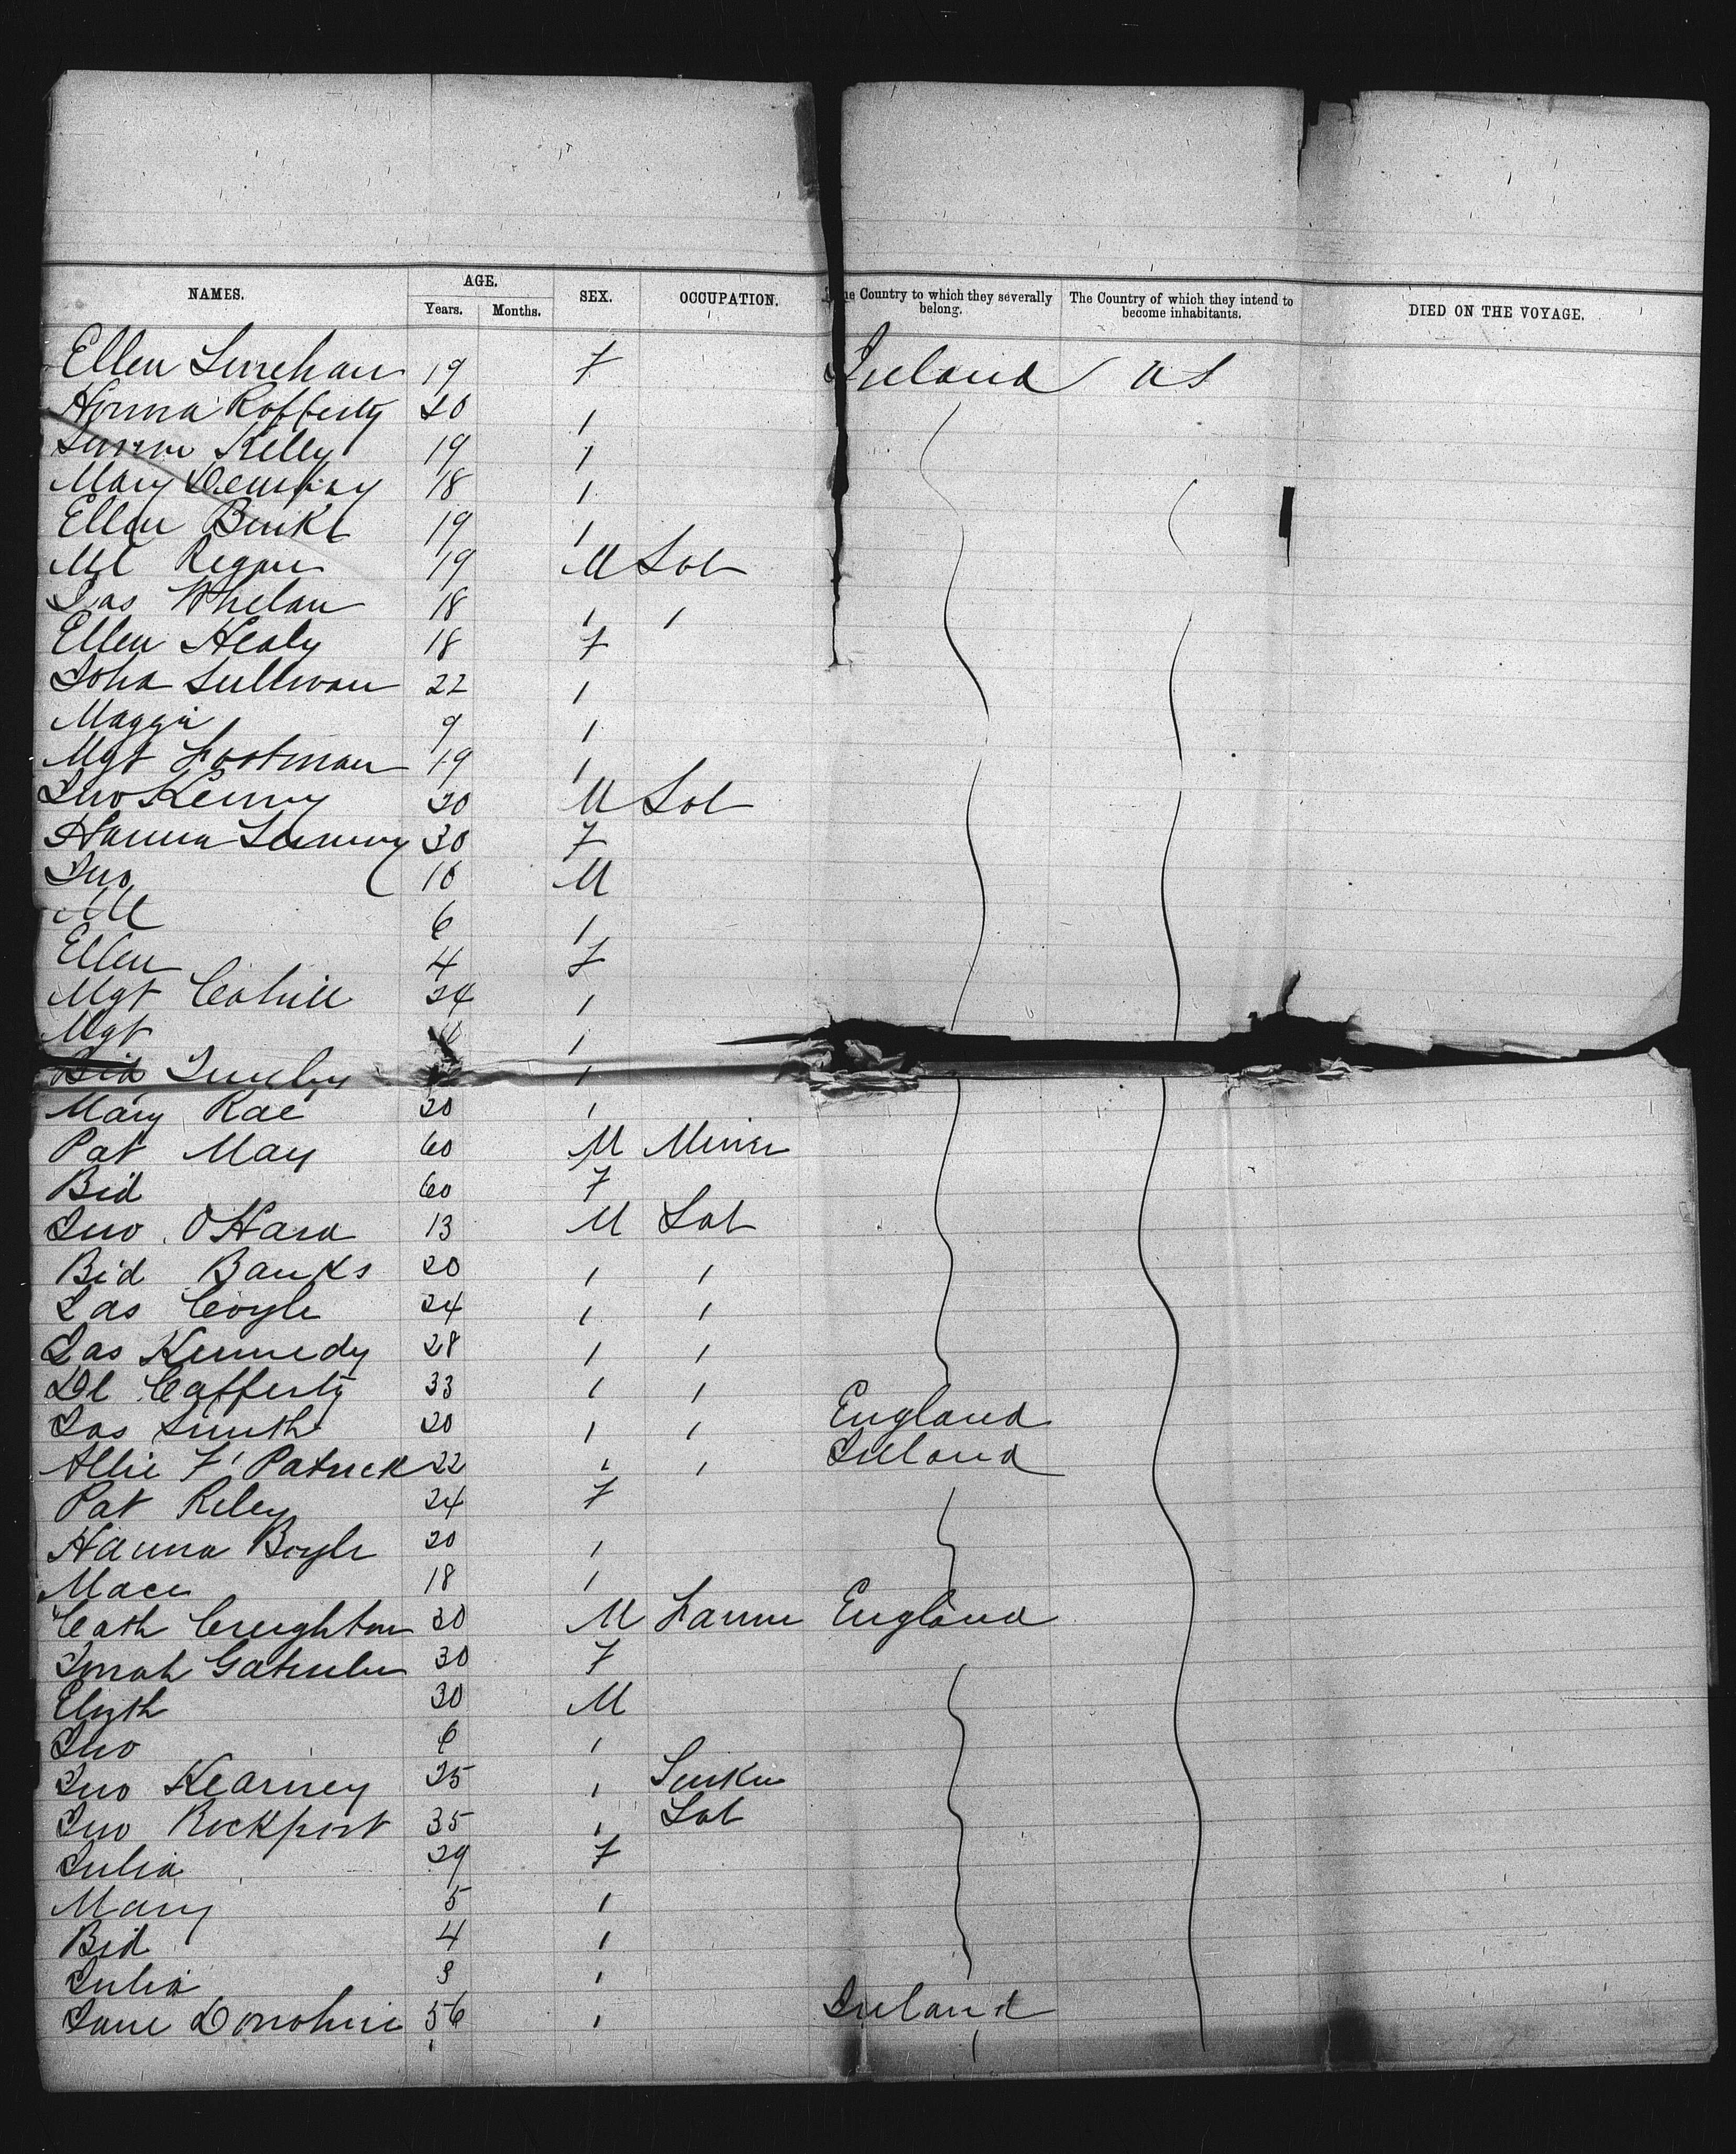 NAMES. AGE. Years. Months. SEX. OCCUPATION. The Country to which they severally belong. The Country of which they intend to become inhabitants. DIED ON THE VOYAGE.
Ellen Linehan 19 F Ireland U S
Honna Rafferty 20 1
Kelly 19 1
Mary Dempsey 18 1
Ellen Burke 19 1
Ml Regan 19 M Lab
Jas Whelan 18 1 1
Ellen Healy 18 F
Joha Sullivan 22 1
Maggie 9 1
Mgt Footman 19 1
Jno Kenny 20 M Lab
Hanna 30 F
Jno 10 M
Ml 6 1
Ellen 4 F
Mgt Cahill 24 1
Mgt 1
Bid 1
Mary Rae 20 1
Pat May 60 M Miner
Bid 60 F
Jno O'Hara 13 M Lab
Bid Banks 20 1 1
Jas Coyle 24 1 1
Jas Kennedy 28 1 1
Dl Cafferty 33 1 1
Jas Smith 20 1 1 England
Allie F' Patrick 22 1 1 Ireland
Pat Riley 24 F
Hanna Boyle 20 1
18 1
Cath Creighton 20 M Farmer England
30 F
Elizth 30 M
Jno 6 1
Jno Kearney 25 1
Jno Rockport 35 1 Lab
Julia 29 F
Mary 5 1
Bid 4 1
Julia 3 1
Jane Donohue 56 1 Ireland